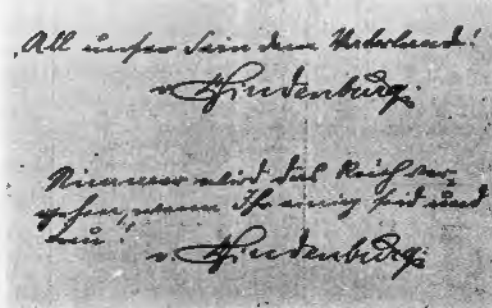 „All unser Sein dem Vaterland!
v. Hindenburg.
Nimmer wird das Reich ver-
gehen, wenn Ihr einig seid und
treu!"
v. Hindenburg.